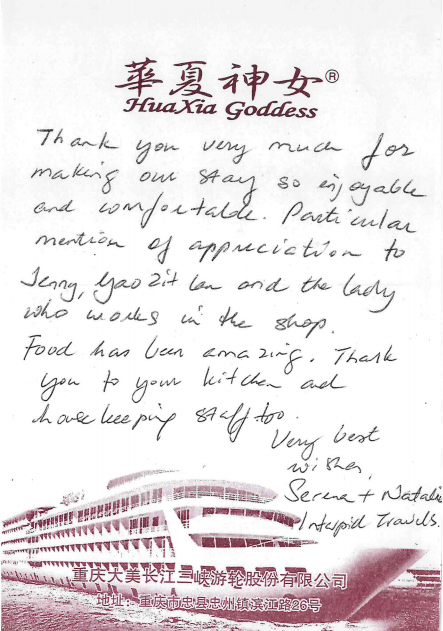 華夏神女®
HuaXia Goddess
Thank you very much for
making our stay so enjoyable
and comfortable. Particular
mention of appreciation to
Jenny, and the lady
who works in the shop.
Food has been amazing. Thank
you to your kitchen and
housekeeping staff too.
Very best
wishes,
Serena + Natalie
Intrepid Travels.
重庆大美长江三峡游轮股份有限公司
地址：重庆市忠县忠州镇滨江路26号